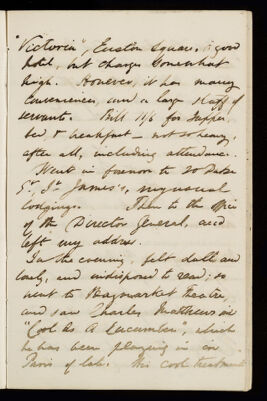 "Victoria", Euston Square, a good
hotel, but charges somewhat
high. However, it has many
conveniences, and a large staff of
servants. Bill 11/6 for supper,
bed & breakfast - not so heavy,
after all, including attendance.
Went in forenoon to 30 Duke
St., St. James's, my usual
lodgings. Then to the office
of the Director General, and
left my address.
In the evening, felt dull and
lonely, and indisposed to read; so
went to Haymarket Theatre,
and saw Charles Matthews in
"Cool as a Cucumber", which
he has been playing in in
Paris of late. His cool treatment